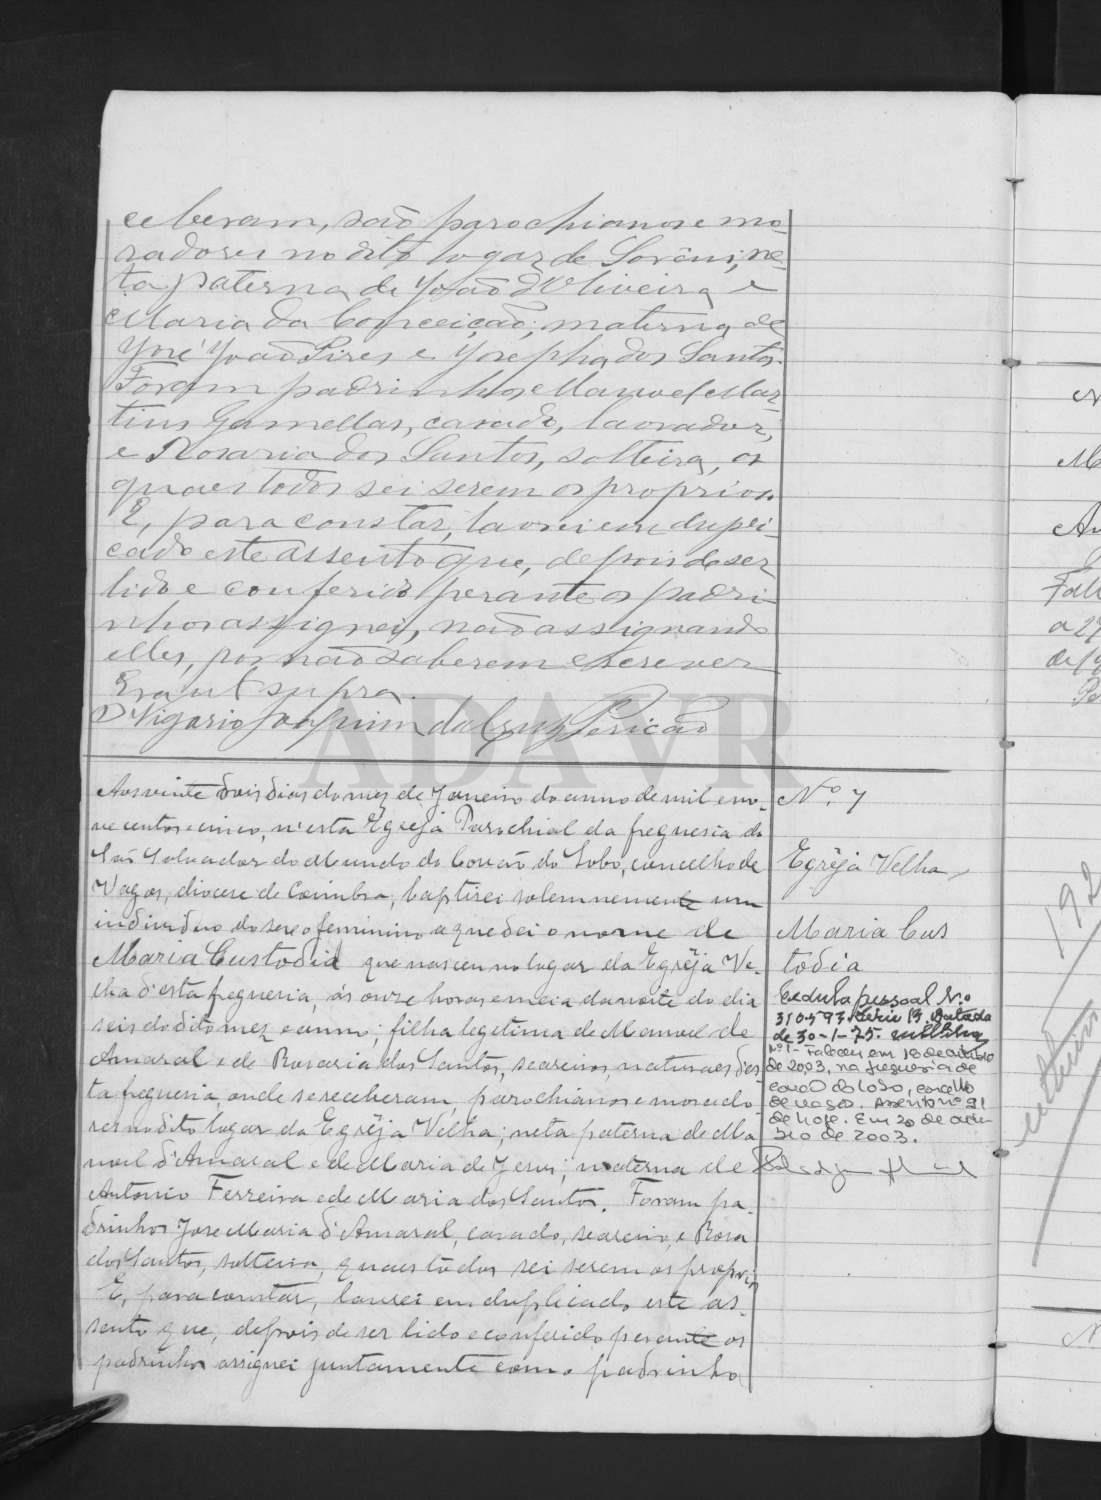 ceberam, são parochianos e mo-
radores no dito logar de
ta paterna de João d'Oliveira e
Maria da Conceição; materna de
José João Pires e Josepha dos Santos.
Foram padrinhos Manoel Mar-
tins Gamellas, casado, lavrador,
e Rosaria dos Santos, solteira, os
quaes todos sei serem os proprios.
E, para constar, lavrei em dupli-
cado este assento que, depois de ser
lido e conferido perante os padri-
nhos assignei, não assignando
elles, por não saberem escrever
Era ut supra.
O Vigario Joaquim da Cruz Pericão
ADAVR
Aos vinte dois dias do mez de Janeiro do anno de mil e no-
ve centos e cinco, n'esta Egreja Parochial da freguesia de
São Salvador do Mundo do Covão do Lobo, concelho de
Vagos, diocese de Coimbra, baptisei solemnemente um
individuo do sexo feminino a que dei o nome de
Maria Custodia que nasceu no logar da Egrêja Ve-
lha d'esta freguesia, ás onze horas e meia da noite do dia
seis do dito mez e anno; filha legitima de Manoel de
Amaral e de Rosaria dos Santos, seareiros, naturaes d'es-
ta freguesia, onde se receberam, parochianos e morado-
res no dito logar da Egrêja Velha; neta paterna de Ma
noel d'Amaral e de Maria de Jesus; materna de
Antonio Ferreira e de Maria dos Santos. Foram pa-
drinhos José Maria d'Amaral, casado, seareiro, e Rosa
dos Santos, solteira, quaes todos sei serem os proprios
E, para constar, lavrei em duplicado este as-
sento que, depois de ser lido e conferido perante os
padrinhos assignei juntamente com o padrinho
Nº. 7
Egrêja Velha
Maria Cus
todia
Cedula pessoal No
310593 Série 13 datada
de 30-1-75.
Nº1- Faleceu em 18 de outubro
de 2003, na freguesia de
Covão do Lobo, concelho
de Vagos. Assento nº 21
de hoje. Em 20 de outu-
bro de 2003.